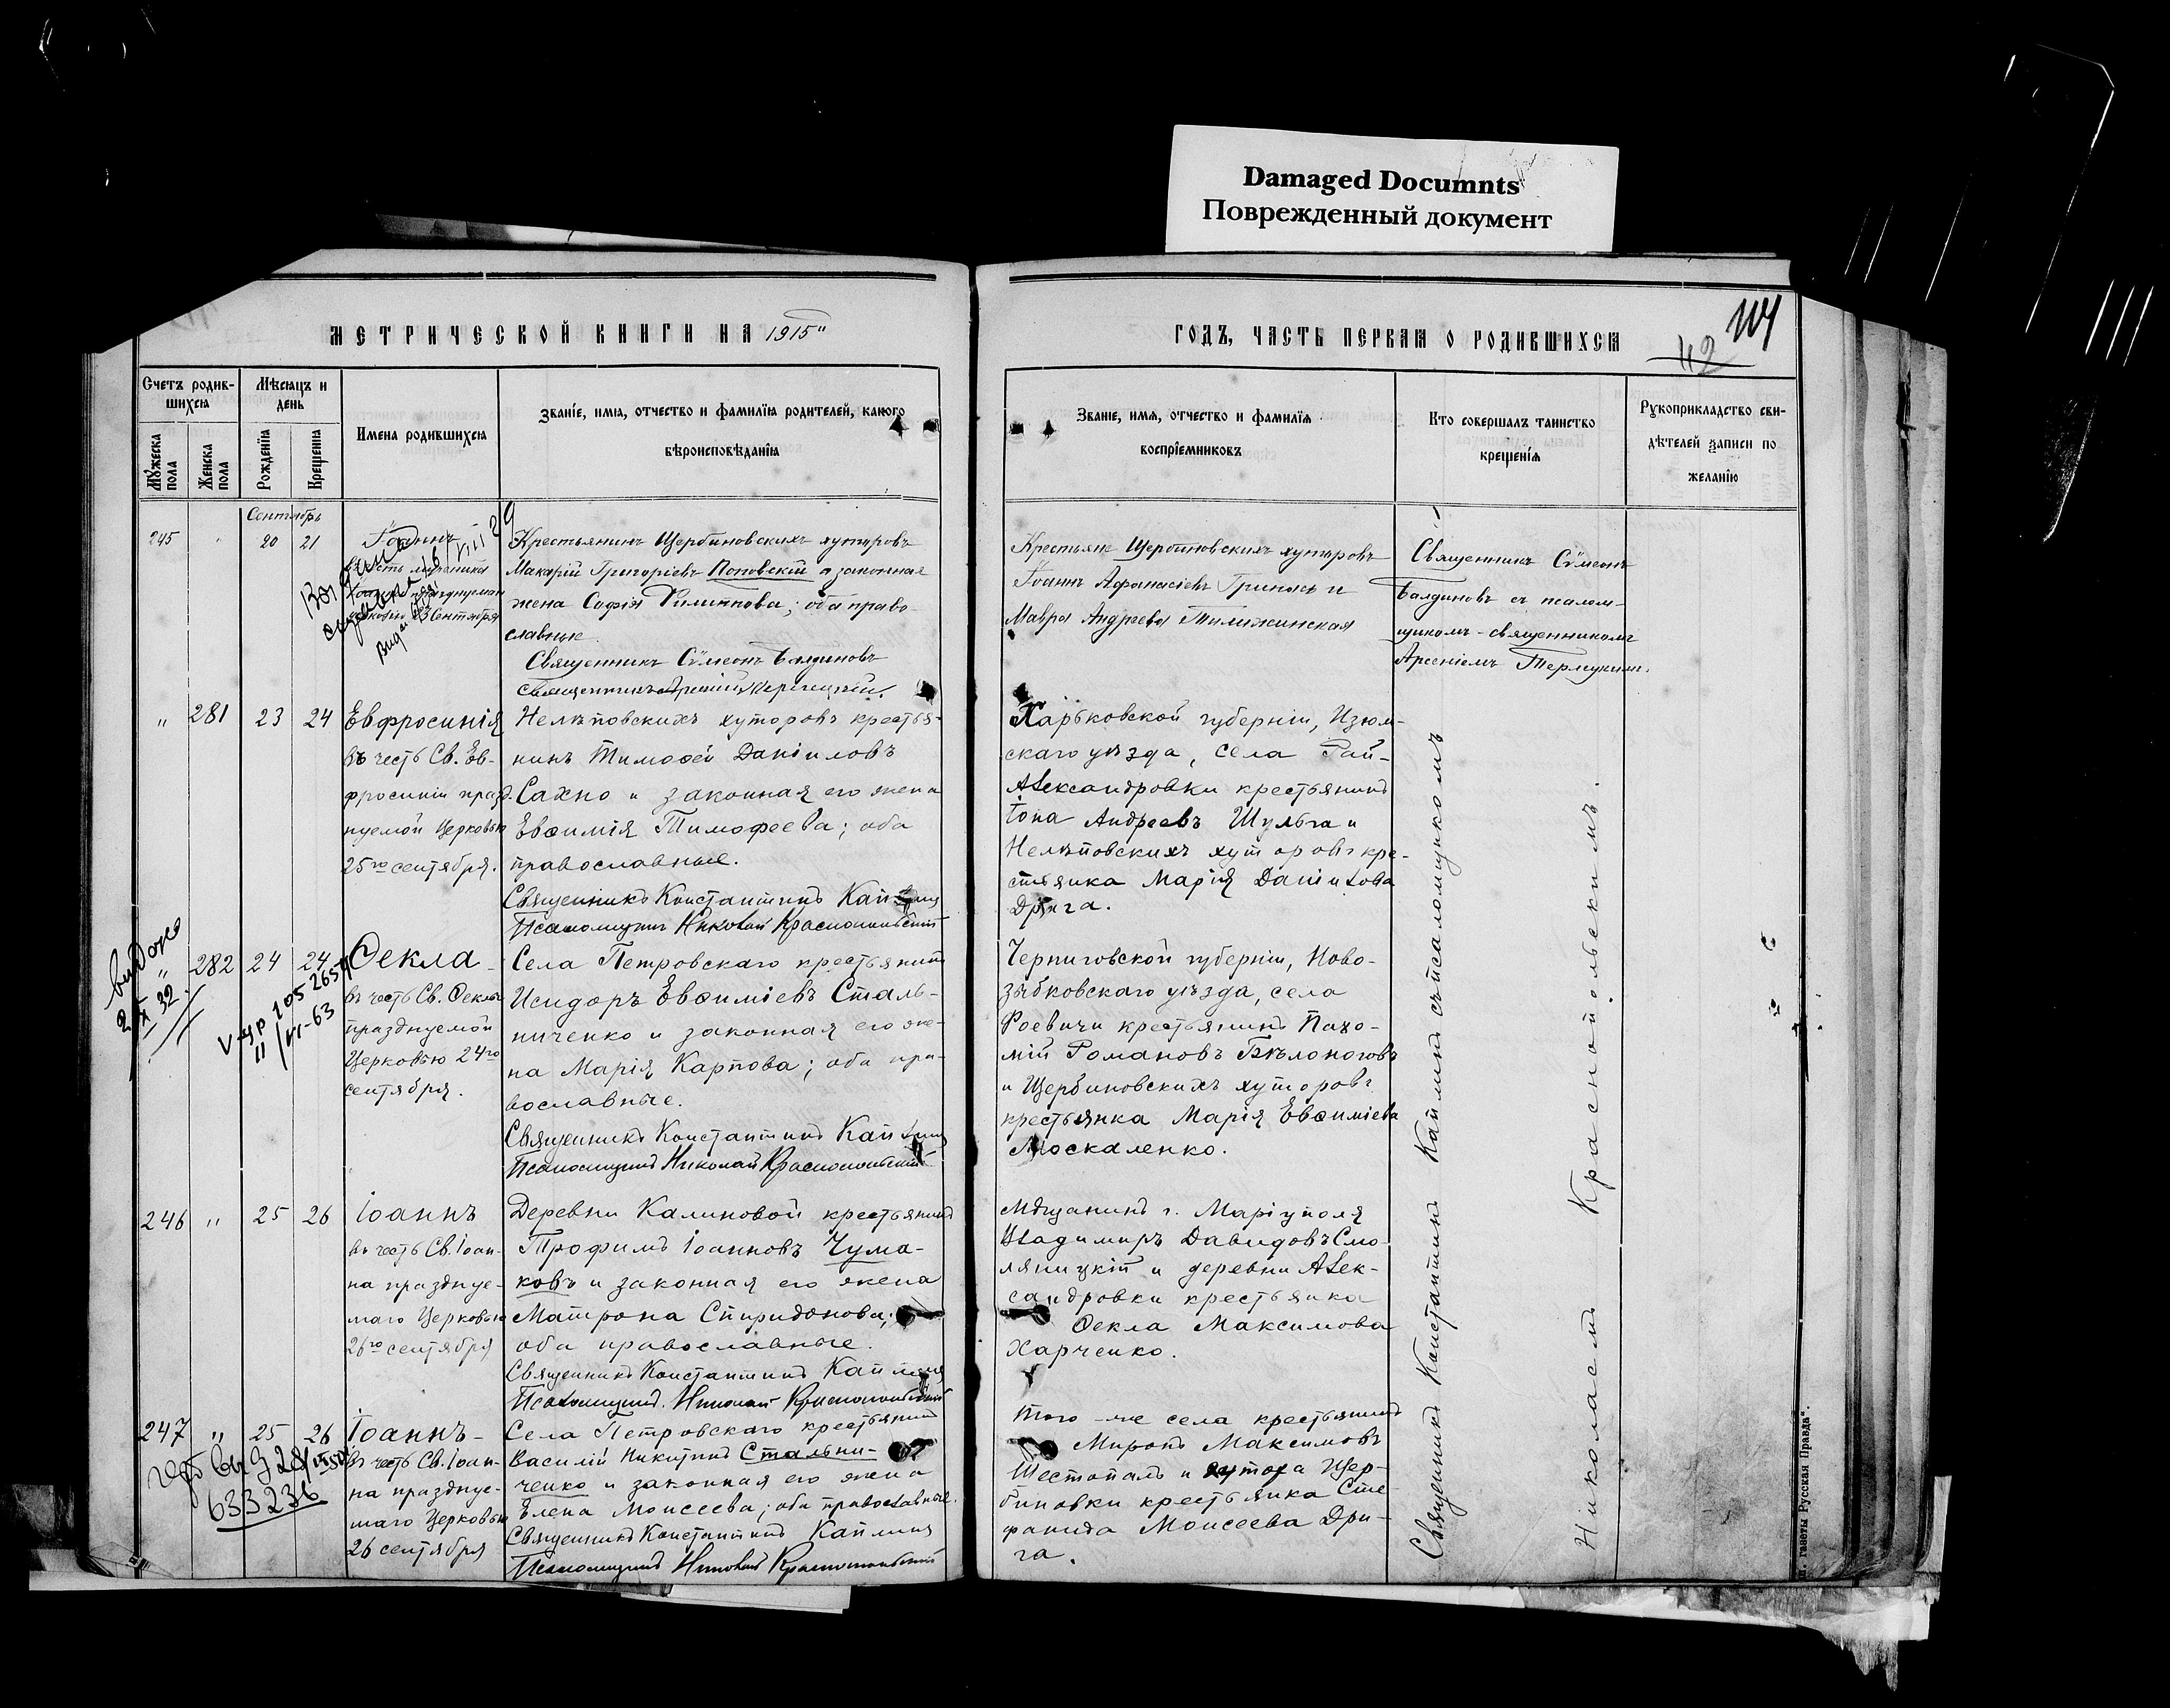 Damaged Documnts
Поврежденный документ
МЕТРИЧЕСКОЙ КНИГИ НА 1915
ГОДЪ, ЧАСТЬ ПЕРВАЯ О РОДИВШИХСЯ
42
Счетъ родив-
шихся
Мѣсяцъ и
день
Мужеска пола
Женска пола
Рожденія
Крещенія
Имена родившихся
Званіе, имя, отчество и фамилія родителей, какого
вѣроисповѣданія
Званіе, имя, отчество и фамилія
воспріемниковъ
Кто совершалъ таинство
крещенія
Рукоприкладство сви-
дѣтелей записи по
желанію
Сентябрь
245 20 21
Іоаннъ
Крестьянинъ Щербиновскихъ хуторовъ
Макарій Григоріевъ Поповскій и законная
жена Софія Филиппова; оба право-
славные.
Священникъ Сѵмеонъ Балдиновъ
Крестьяне Щербиновскихъ хуторовъ
Іоаннъ Афанасіевъ и
Мавра Андреева
Священникъ Сѵмеонъ
Балдиновъ съ псалом-
щикомъ-священникомъ
Арсеніемъ
" 281 23 24
Евфросинія
въ честь Св. Ев-
фросиніи празд-
нуемой Церковью
25го сентября.
Нелѣповскихъ хуторовъ крестья-
нинъ Тимоѳей Даніиловъ
Сахно и законная его жена
Евѳимія Тимофеева; оба
православные.
Священникъ Константинъ Каплинъ
Псаломщикъ Николай Краснопольскій
Харьковской губерніи, Изюм-
скаго уѣзда, села Рай-
Александровки крестьянинъ
Іона Андреевъ Шульга и
Нелѣповскихъ хуторовъ кре-
стьянка Марія Даніилова
Дрига.
видано
" 282 24 24
Ѳекла
въ честь Св. Ѳеклы
празднуемой
Церковью 24го
сентября.
Села Петровскаго крестьянинъ
Исидоръ Евѳиміевъ Сталь-
ниченко и законная его же-
на Марія Карпова; оба пра-
вославные.
Священникъ Константинъ Каплинъ
Псаломщикъ Николай Краснопольскій
Черниговской губерніи, Ново-
зыбковскаго уѣзда, села
Роевичи крестьянинъ Пахо-
мій Романовъ Бѣлоноговъ
и Щербиновскихъ хуторовъ
крестьянка Марія Евѳиміева
Москаленко.
246 " 25 26
Іоаннъ
въ честь Св. Іоан-
на празднуе-
маго Церковью
26го сентября
Деревни Калиновой крестьянинъ
Трофимъ Іоанновъ Чума-
ковъ и законная его жена
Матрона Спиридонова;
оба православные.
Священникъ Константинъ Каплинъ
Псаломщикъ Николай Краснопольскій
Мѣщанинъ г. Маріуполя
Владимиръ Давидовъ Смо-
ляницкій и деревни Алек-
сандровки крестьянка
Ѳекла Максимова
Харченко.
247 " 25 26
633236
Іоаннъ
въ честь Св. Іоан-
на празднуе-
маго Церковью
26 сентября
Села Петровскаго крестьянинъ
Василій Никитинъ Стальни-
ченко и законная его жена
Елена Моисеева; оба православные.
Священникъ Константинъ Каплинъ
Псаломщикъ Николай Краснопольскій
Того-же села крестьянинъ
Миронъ Максимовъ
Шестопалъ и хутора Щер-
биновки крестьянка Сте-
фанида Моисеева Дри-
га.
Священникъ Константинъ Каплинъ съ псаломщикомъ
Николаемъ Краснопольскимъ.
газеты „Русская Правда".